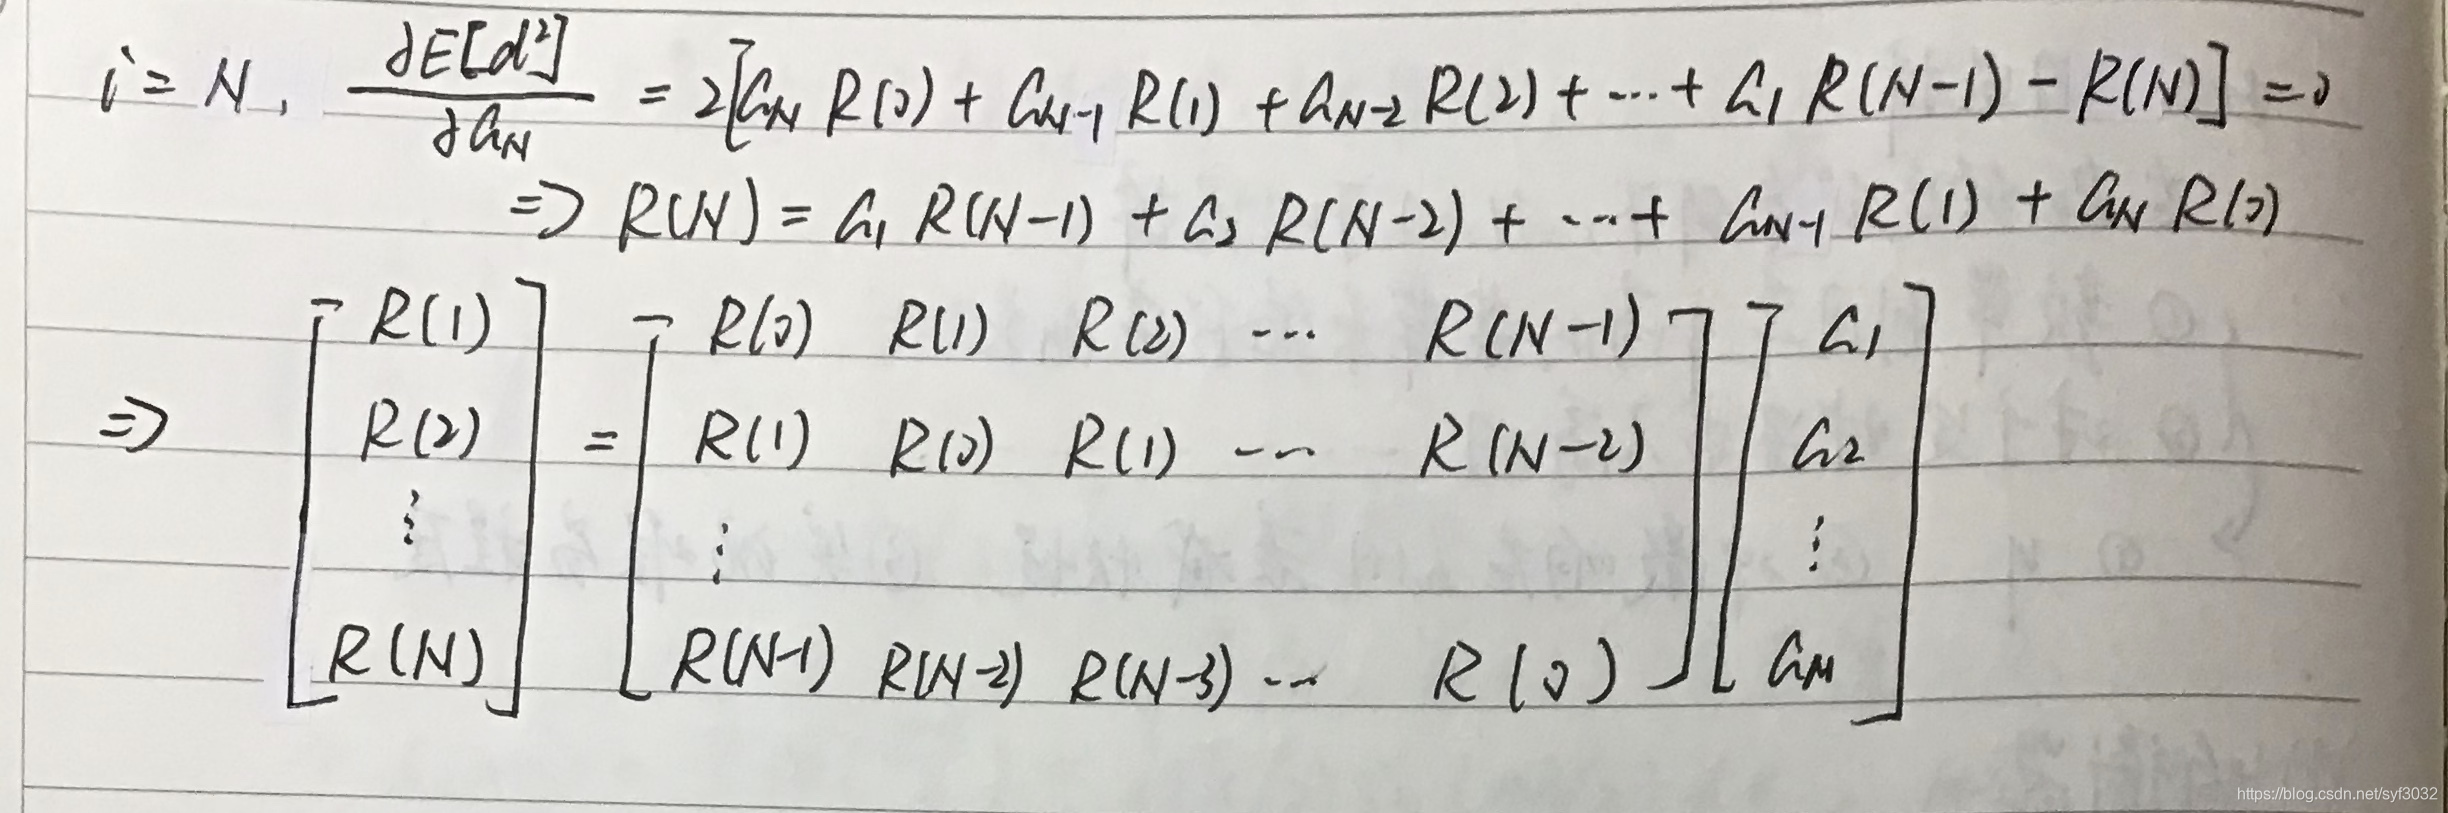 i = N, ∂E[d²]/∂a_N = 2[a_N R(0) + a_{N-1} R(1) + a_{N-2} R(2) + ... + a_1 R(N-1) - R(N)] = 0
=> R(N) = a_1 R(N-1) + a_2 R(N-2) + ... + a_{N-1} R(1) + a_N R(0)
[R(1)] [R(0) R(1) R(2) ... R(N-1)] [a_1]
=> [R(2)] = [R(1) R(0) R(1) ... R(N-2)] [a_2]
⋮ ⋮ ⋮
[R(N)] [R(N-1) R(N-2) R(N-3) ... R(0)] [a_N]
https://blog.csdn.net/syf3032